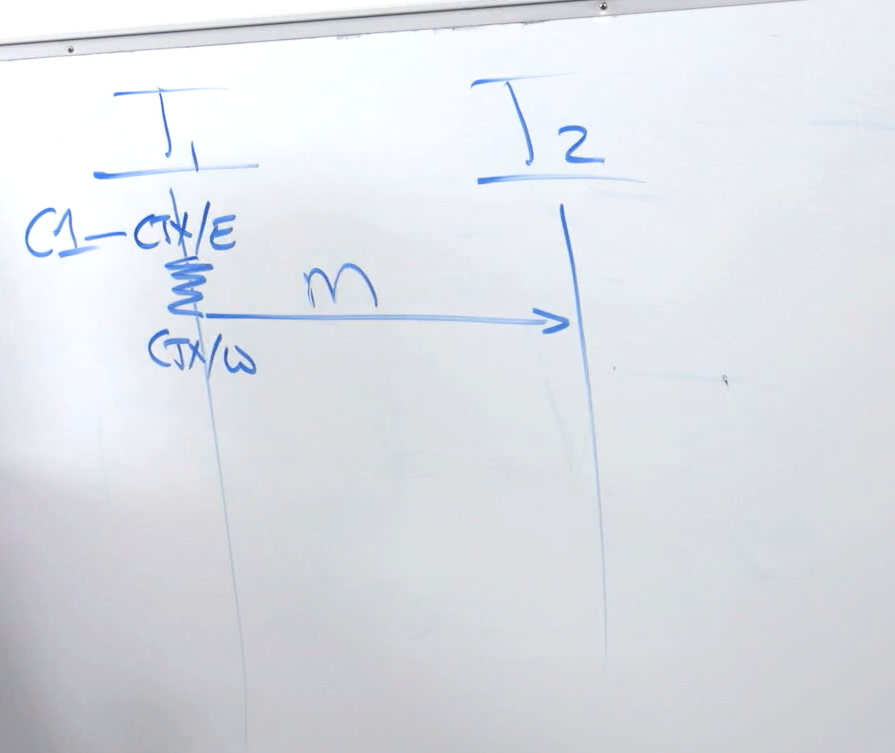 T1 T2
C1 — CTX/E
m
CTX/W